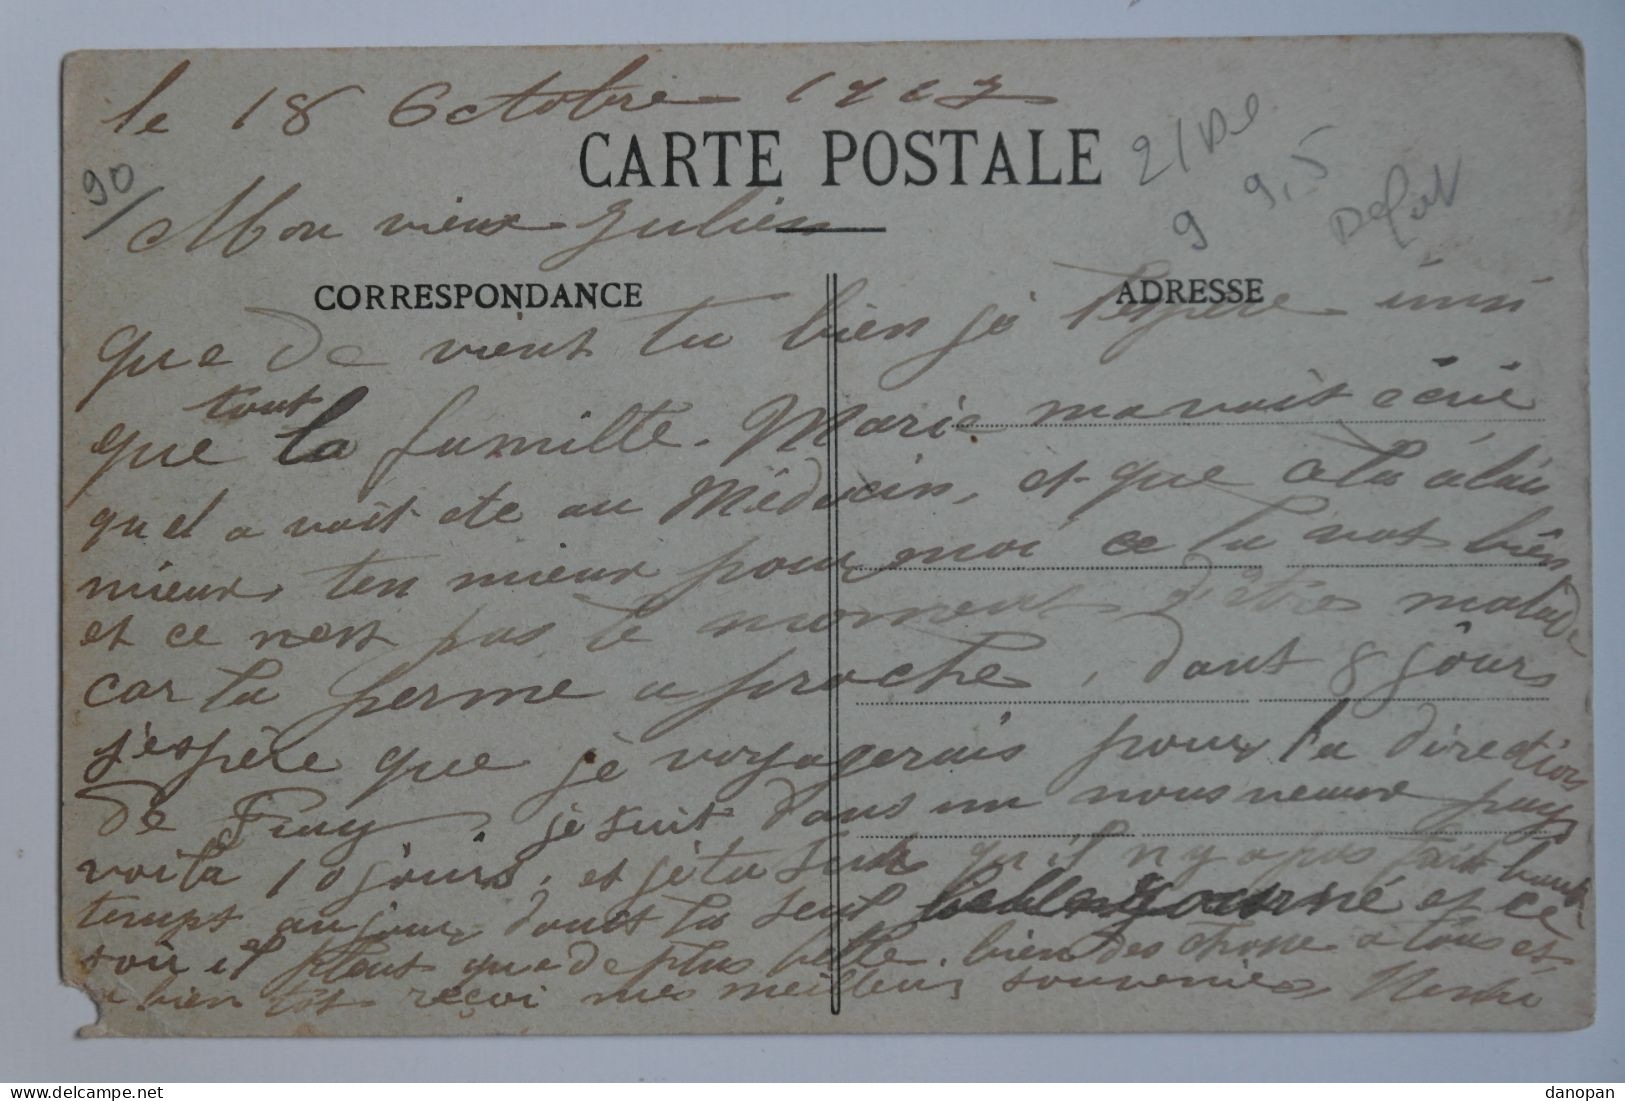 le 18 Octobre 1917
CARTE POSTALE
21 
9 9,5
Defaut
90/
Mon vieux Julien
CORRESPONDANCE
ADRESSE
que de vient tu bien je l'espère insi
que tout la famille. Marie mavait écrie
quel a vait ete au Médecin, et que cela alais
mieux, ten mieux pour moi ce la vat bien
et ce nest pas le moment d'être malade
car la perme a proche, dant 8 jours
j'espère que je voyagerais pour la direction
de . je suit dans un nousveaux pays
voila 10 jours, et jéta sur qu'il ny a pas fait baux
temps aujour donct la seul belle journé et ce
soir il pleut que de plus belle. bien des chose a tous et
a bien tot reçoi mes meilleurs souvenirs Henri
danopan